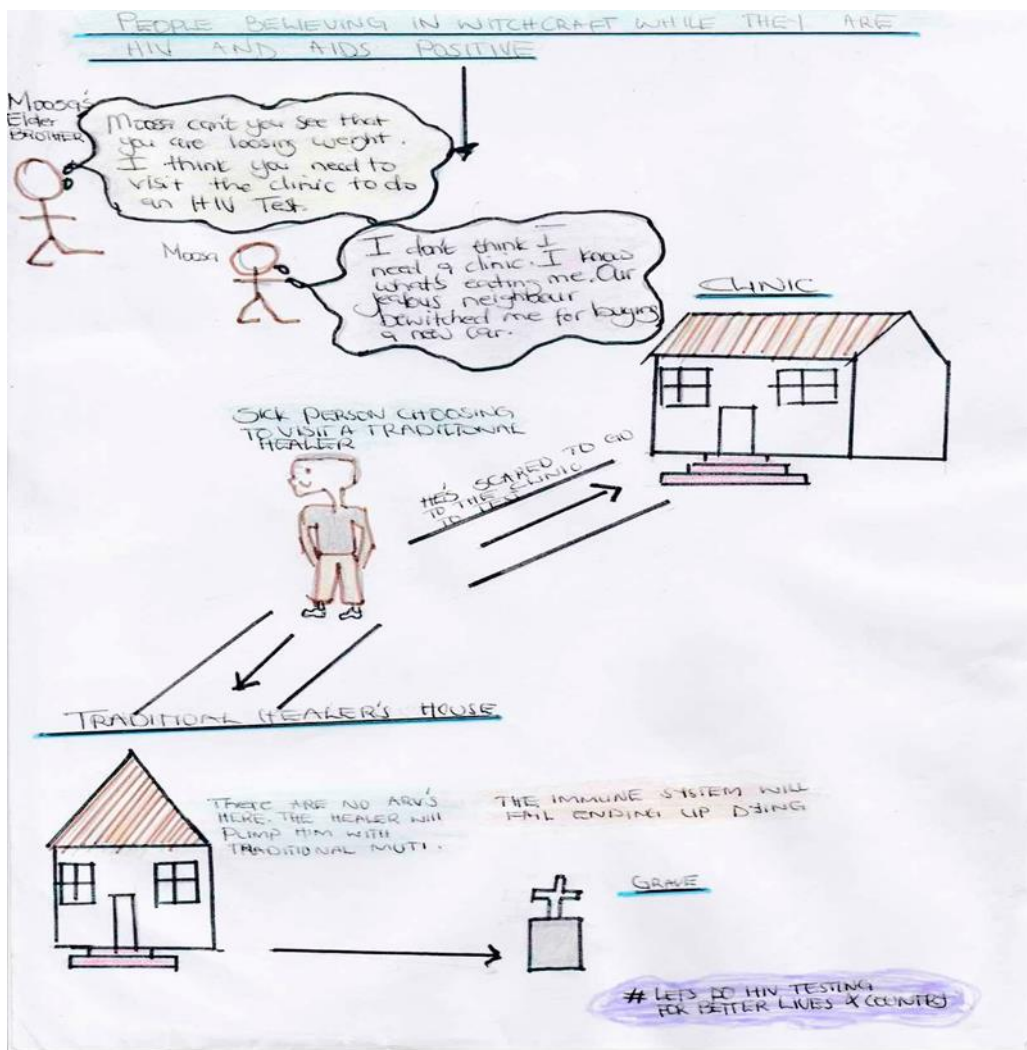 PEOPLE BELIEVING IN WITCHCRAFT WHILE THEY ARE
HIV AND AIDS POSITIVE
Moosa's
Elder
BROTHER
Moosa can't you see that
you are loosing weight.
I think you need to
visit the clinic to do
an HIV Test.
Moosa
I don't think I
need a clinic. I know
what's eating me. Our
jealous neighbour
bewitched me for buying
a new car.
CLINIC
SICK PERSON CHOOSING
TO VISIT A TRADITIONAL
HEALER
HE'S SCARED TO GO
TO THE CLINIC
TO TEST
TRADITIONAL HEALER'S HOUSE
THERE ARE NO ARV'S
HERE. THE HEALER WILL
PUMP HIM WITH
TRADITIONAL MUTI.
THE IMMUNE SYSTEM WILL
FAIL ENDING UP DYING
GRAVE
# LETS DO HIV TESTING
FOR BETTER LIVES & COUNTRY